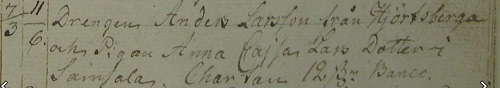 7/3 11/6 Drengen Anders Larsson från Hjortsberga
och Pigan Anna Cajsa Lars Dotter i
Sainsala. Char. Sau 12 Banco.